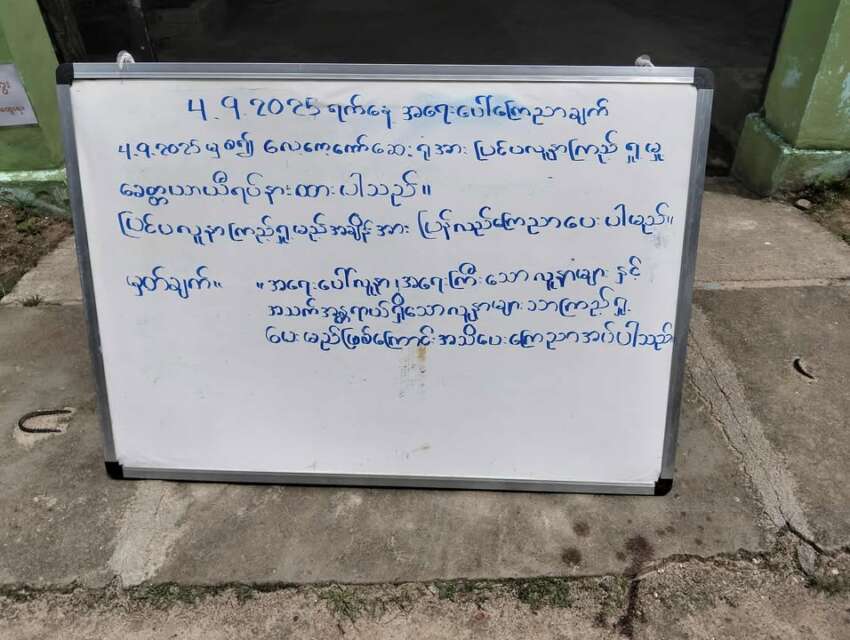 4.9.2025 ရက်နေ့ အရေးပေါ်ကြေညာချက်
4.9.2025 မှစ၍ လေ့ကေ့ကော်ဆေးရုံအား ပြင်ပလူနာကြည့်ရှုမှု
ခေတ္တယာယီရပ်နားထားပါသည်။
ပြင်ပလူနာကြည့်ရှုမည့်အချိန်အား ပြန်လည်ကြေညာပေးပါမည်။
မှတ်ချက်။ "အရေးပေါ်လူနာ၊ အရေးကြီးသော လူနာများ နှင့်
အသက်အန္တရာယ်ရှိသောလူနာများသာကြည့်ရှု
ပေးမည်ဖြစ်ကြောင်းအသိပေးကြေညာအပ်ပါသည်